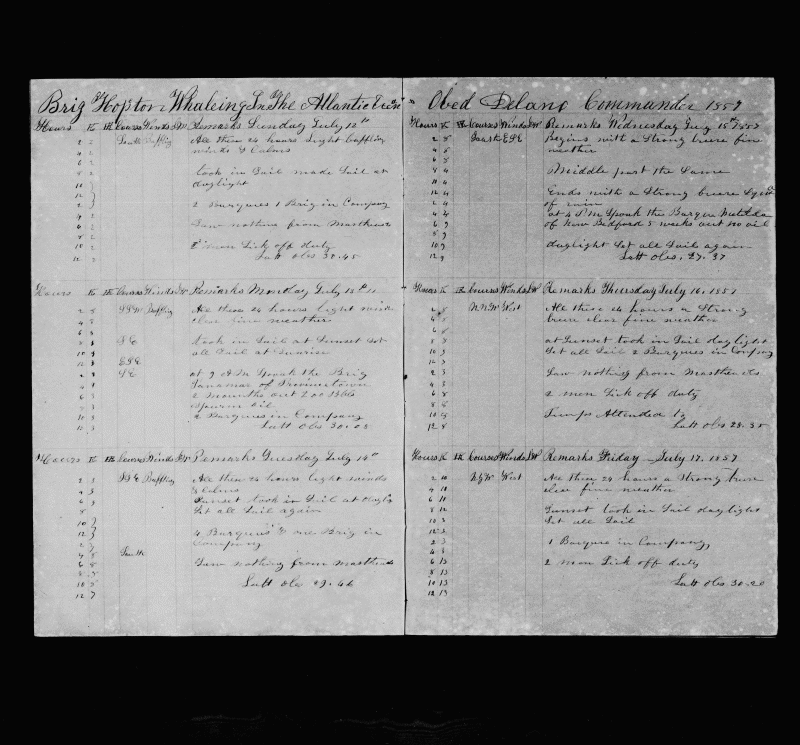 Brig Hopton Whaleing In The Atlantic
Hours K HK Courses Winds LW Remarks Sunday July 12th
2 2 South Baffling All these 24 hours light baffling
4 2 winds & Calms
6 2
8 2 took in Sail made Sail at
10 daylight
12
2 2 2 Barques 1 Brig in Company
4 2
6 2 Saw nothing from Mastheads
8 2
10 2 men Sick off duty
12 2 Latt Obs 30.45
Hours K HK Courses Winds LW Remarks Monday July 13th
2 8 SSW Baffling All these 24 hours light winds
4 8 clear fine weather
6 8
8 SE took in Sail at Sunset Set
10 3 all Sail at Sunrise
12 3 ESE
2 SE at 9 AM Spoak the Brig
4 of Provincetown
6 3 2 mounths out 200 bbls
8 3 Sperm oil
10 3 2 Barques in Company
12 3 Latt Obs 30.08
Hours K HK Courses Winds LW Remarks Tuesday July 14th
2 3 SSE Baffling All these 24 hours light winds
4 3 & Calms
6 3 Sunset took in Sail at daylig
8 Set all Sail again
10
12 4 Barques & one Brig in
2 Company
4 8 South
6 8 Saw nothing from Mastheads
8 8
10 8 Latt Obs 29.46
12 7
Obed Delano Commander 1857
Hours K HK Courses Winds LW Remarks Wednesday July 15th 1857
2 8 South ESE Begins with a Strong breeze fine
4 8 weather
6 8
8 8 Middle part the Same
10 4
12 4 Ends with a Strong breeze
2 4 of rain
4 4 at 4 P.M Spoak the Barque Matilda
6 9 of New Bedford 5 weeks out no oil
8 9
10 9 daylight Set all Sail again
12 9 Latt Obs. 27.37
Hours K HK Courses Winds LW Remarks Thursday July 16, 1857
2 8 NNW West All these 24 hours a Strong
4 8 breeze clear fine weather
6 8
8 8 at Sunset took in Sail daylight
10 3 Set all Sail 2 Barques in Company
12 3
2 3 Saw nothing from Mastheads
4 3
6 8 2 men Sick off duty
8 8
10 8 Pumps Attended to
12 8 Latt Obs 28.35
Hours K HK Courses Winds LW Remarks Friday July 17. 1857
2 10 NW West All these 24 hours a Strong breeze
4 10 clear fine weather
6 11
8 12 Sunset took in Sail daylight
10 3 Set all Sail
12 3
2 3 1 Barque in Company
4 3
6 13 2 men Sick off duty
8 13
10 13 Latt Obs 30.20
12 13